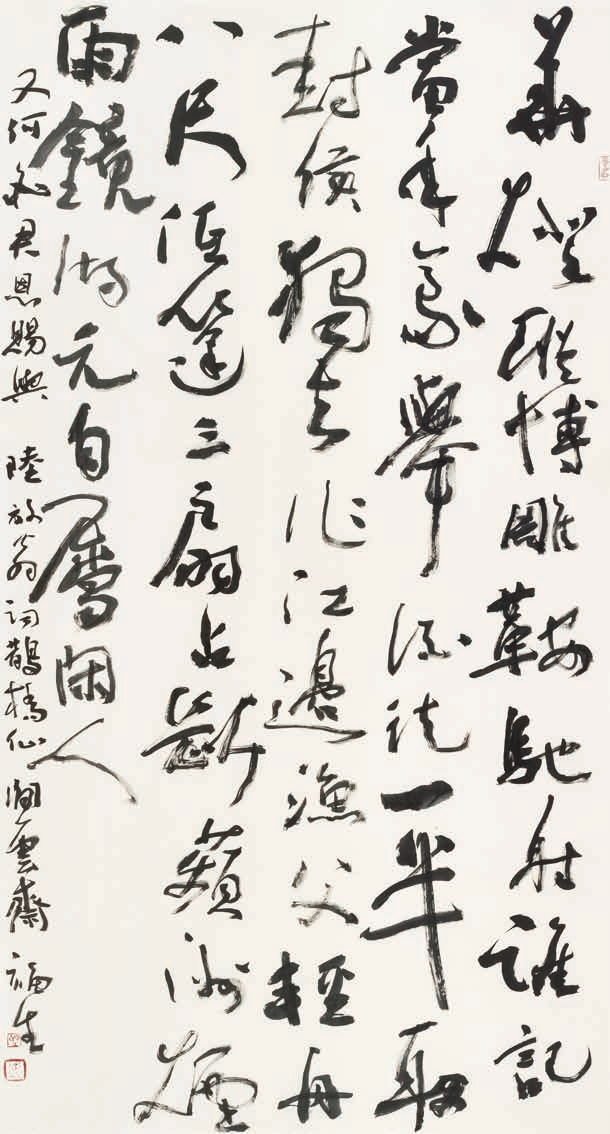 華燈縱博雕鞍馳射誰記
當年豪舉酒徒一半取
封侯獨去作江邊漁父輕舟
八尺低篷三扇占斷蘋洲煙
雨鏡湖元自屬閑人
又何必君恩賜與 陸放翁詞鵲橋仙 雲齋 福生